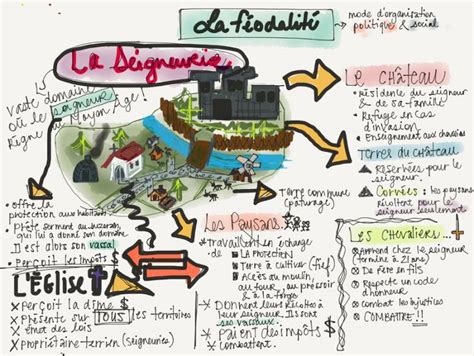 La féodalité
mode d'organisation
politique & social
La Seigneurie
vaste domaine
où le seigneur
règne au Moyen Âge!
Le château
Résidence du seigneur
& de sa famille
Refuge en cas
d'invasion
Renseignement aux chevaliers
Terres du château
Réservées pour le
seigneur.
Corvées: les paysans
récoltent pour le
seigneur seulement
Terre commune
(paturage)
offre la
protection aux habitants
Prête serment au suzerain,
qui lui a donné son domaine.
Il est alors son vassal
Perçoit les impôts
L'Église
Perçoit la dîme $
Présente sur TOUS les territoires
émet des lois
propriétaire-terrien (Seigneuries)
Les Paysans
travaillent en échange
de
La protection
Terre à cultiver (fief)
Accès au moulin,
au four, au pressoir
& à la forge
Donnent leurs récoltes à
leur seigneur. Ils sont
ses vassaux.
Paient des impôts $
Combattent.
Les chevaliers
Apprend chez le seigneur
(termine à 21 ans)
De père en fils
Respecte un code
d'honneur
Combat les injustices
COMBATTRE!!